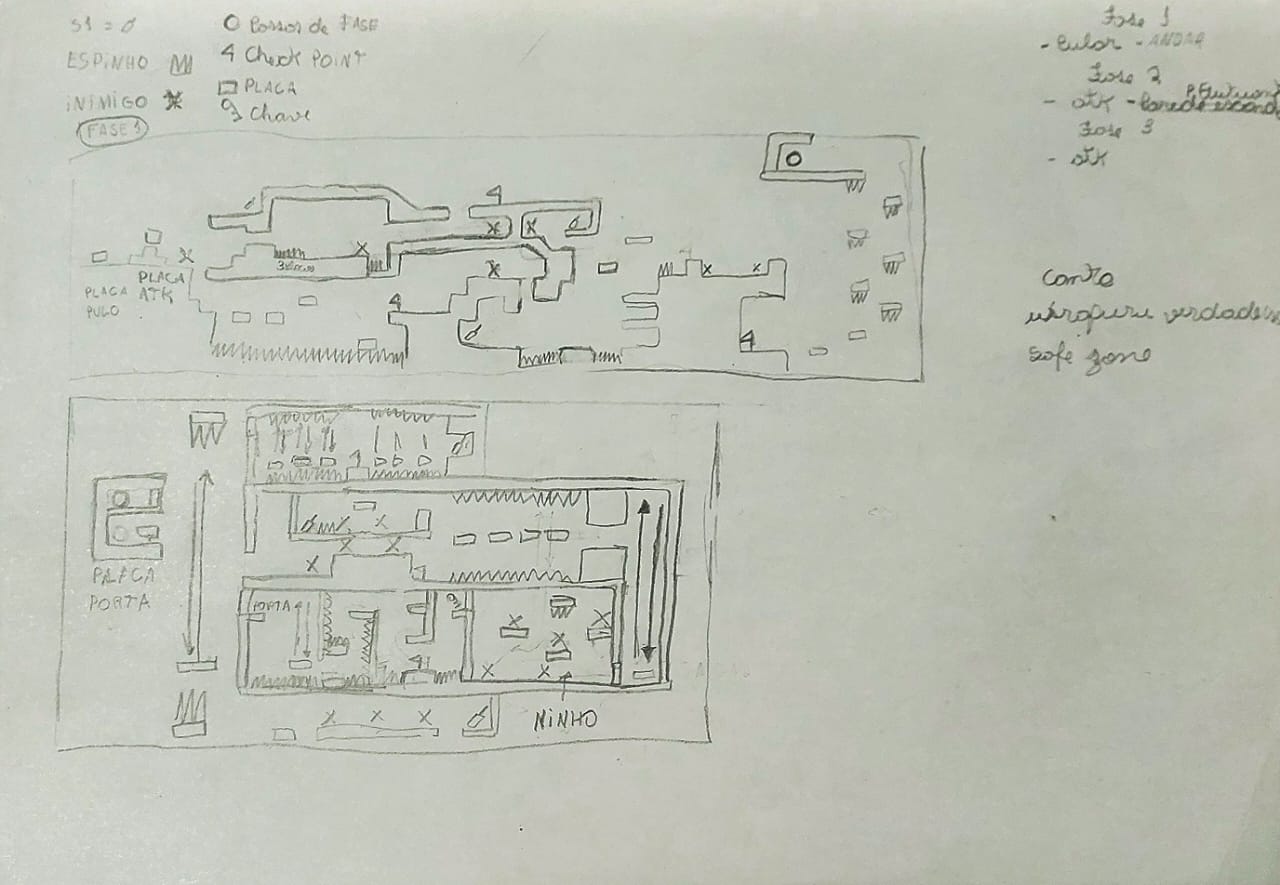 S1 = 
ESPINHO
INIMIGO
O Passar de FASE
4 Check POINT
PLACA
Chave
FASE 1
Fase 1
- Pular - ANDAR
Fase 2
- atk - Parede
Fase 3
- atk
PLACA
PULO
PLACA
ATK
Canto
verdadeiro
Safe zone
PLACA
PORTA
PORTA
NINHO